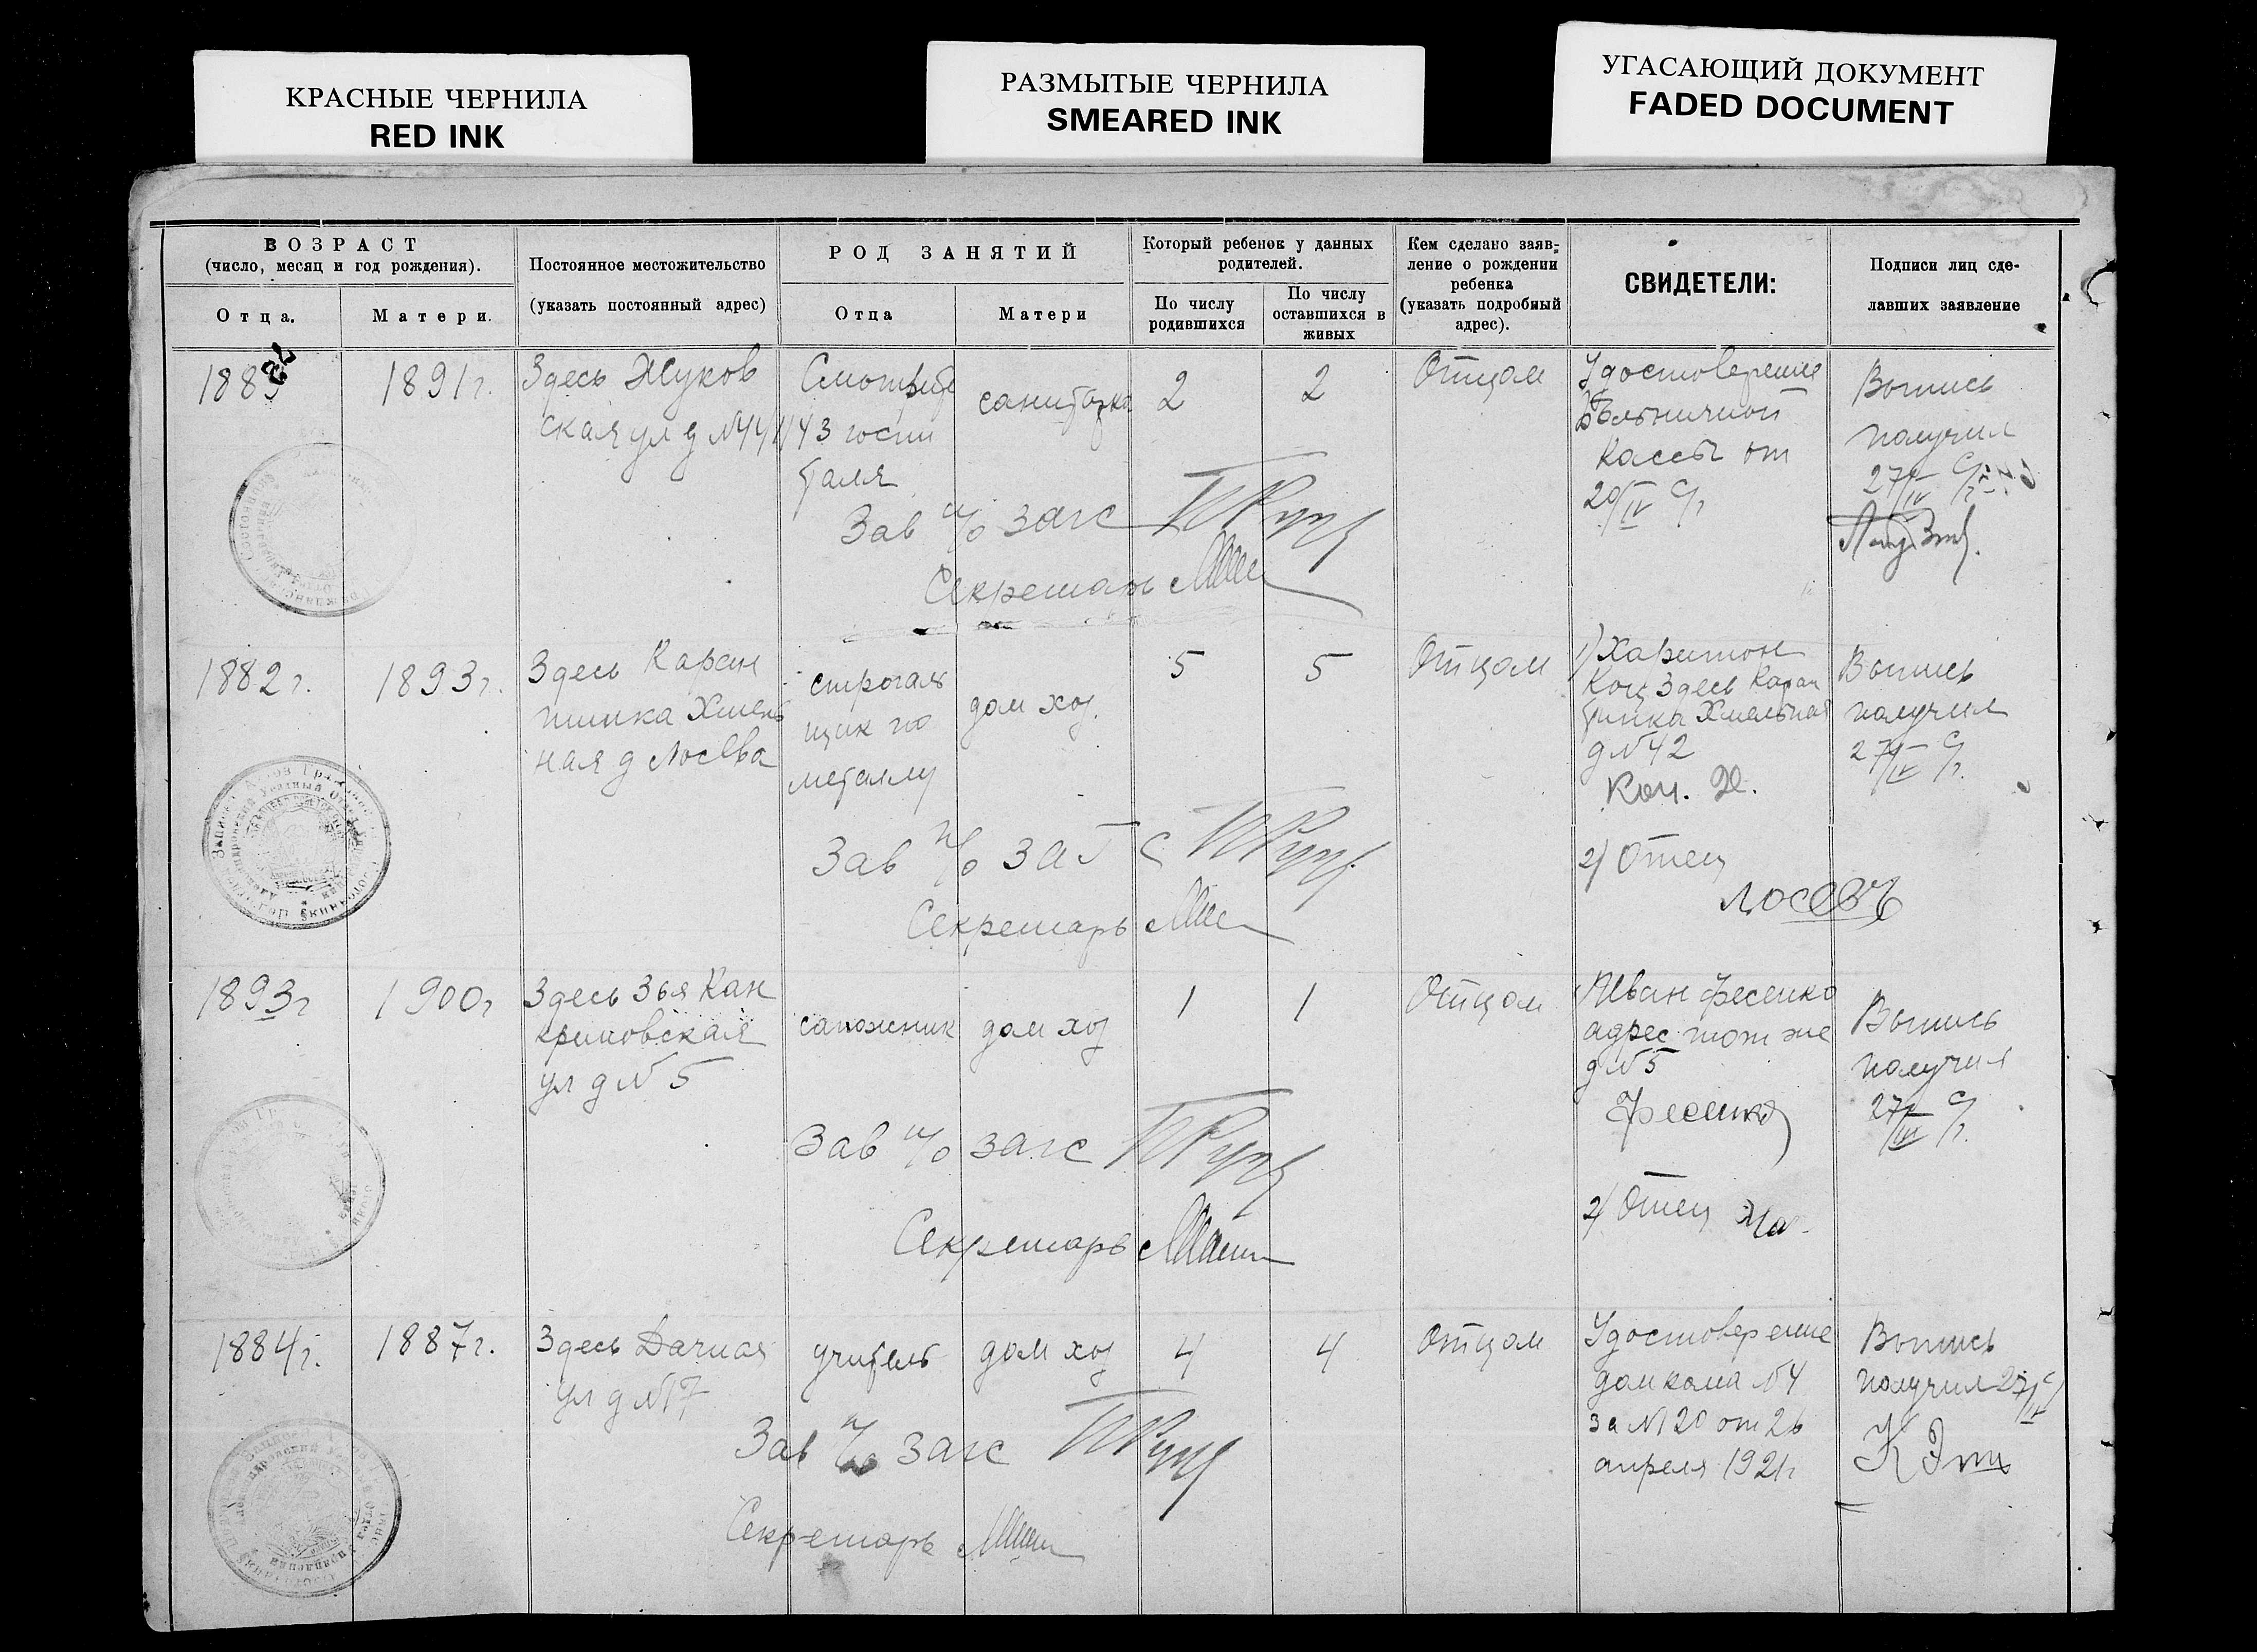 КРАСНЫЕ ЧЕРНИЛА
RED INK
РАЗМЫТЫЕ ЧЕРНИЛА
SMEARED INK
УГАСАЮЩИЙ ДОКУМЕНТ
FADED DOCUMENT
ВОЗРАСТ
(число, месяц и год рождения).
Отца.
Матери.
Постоянное местожительство
(указать постоянный адрес)
РОД ЗАНЯТИЙ
Отца
Матери
Который ребенок у данных
родителей.
По числу
родившихся
По числу
оставшихся в
живых
Кем сделано заяв-
ление о рождении
ребенка
(указать подробный
адрес).
СВИДЕТЕЛИ:
Подписи лиц сде-
лавших заявление
1891г.
Здесь Жуков
ская ул д №44
43 госпи
таля
санитарка
2
2
Отцом
Удостоверение
Больничной
Кассы от
20/IV с/г
Выпись
получил
27/IV с/г
Зав п/о загс
Секретарь
1882г.
1893г.
Здесь Каран
тинка Хмель
ная д Лосева
строгаль
щик по
металлу
дом хоз.
5
5
Отцом
1) Харитон
Коц Здесь Каран
тинка Хмельная
д №42
2) Отец
Лосевъ
Выпись
получил
27/IV с/г.
Зав п/о ЗАГС
Секретарь
1893г
1900г
Здесь 3ья Кан
криновская
ул д № 5
сапожник
дом хоз
1
1
Отцом
Иван Фесенко
адрес тот же
д №5
Фесенко
2) Отец
Выпись
получил
27/IV с/г.
Зав п/о загс
Секретарь
1884г.
1887г.
Здесь Дачная
ул д №17
учитель
дом хоз
4
4
Отцом
Удостоверение
домкома №4
за №20 от 26
апреля 1921г
Выпись
получил 27/IV с/г
Зав п/о загс
Секретарь